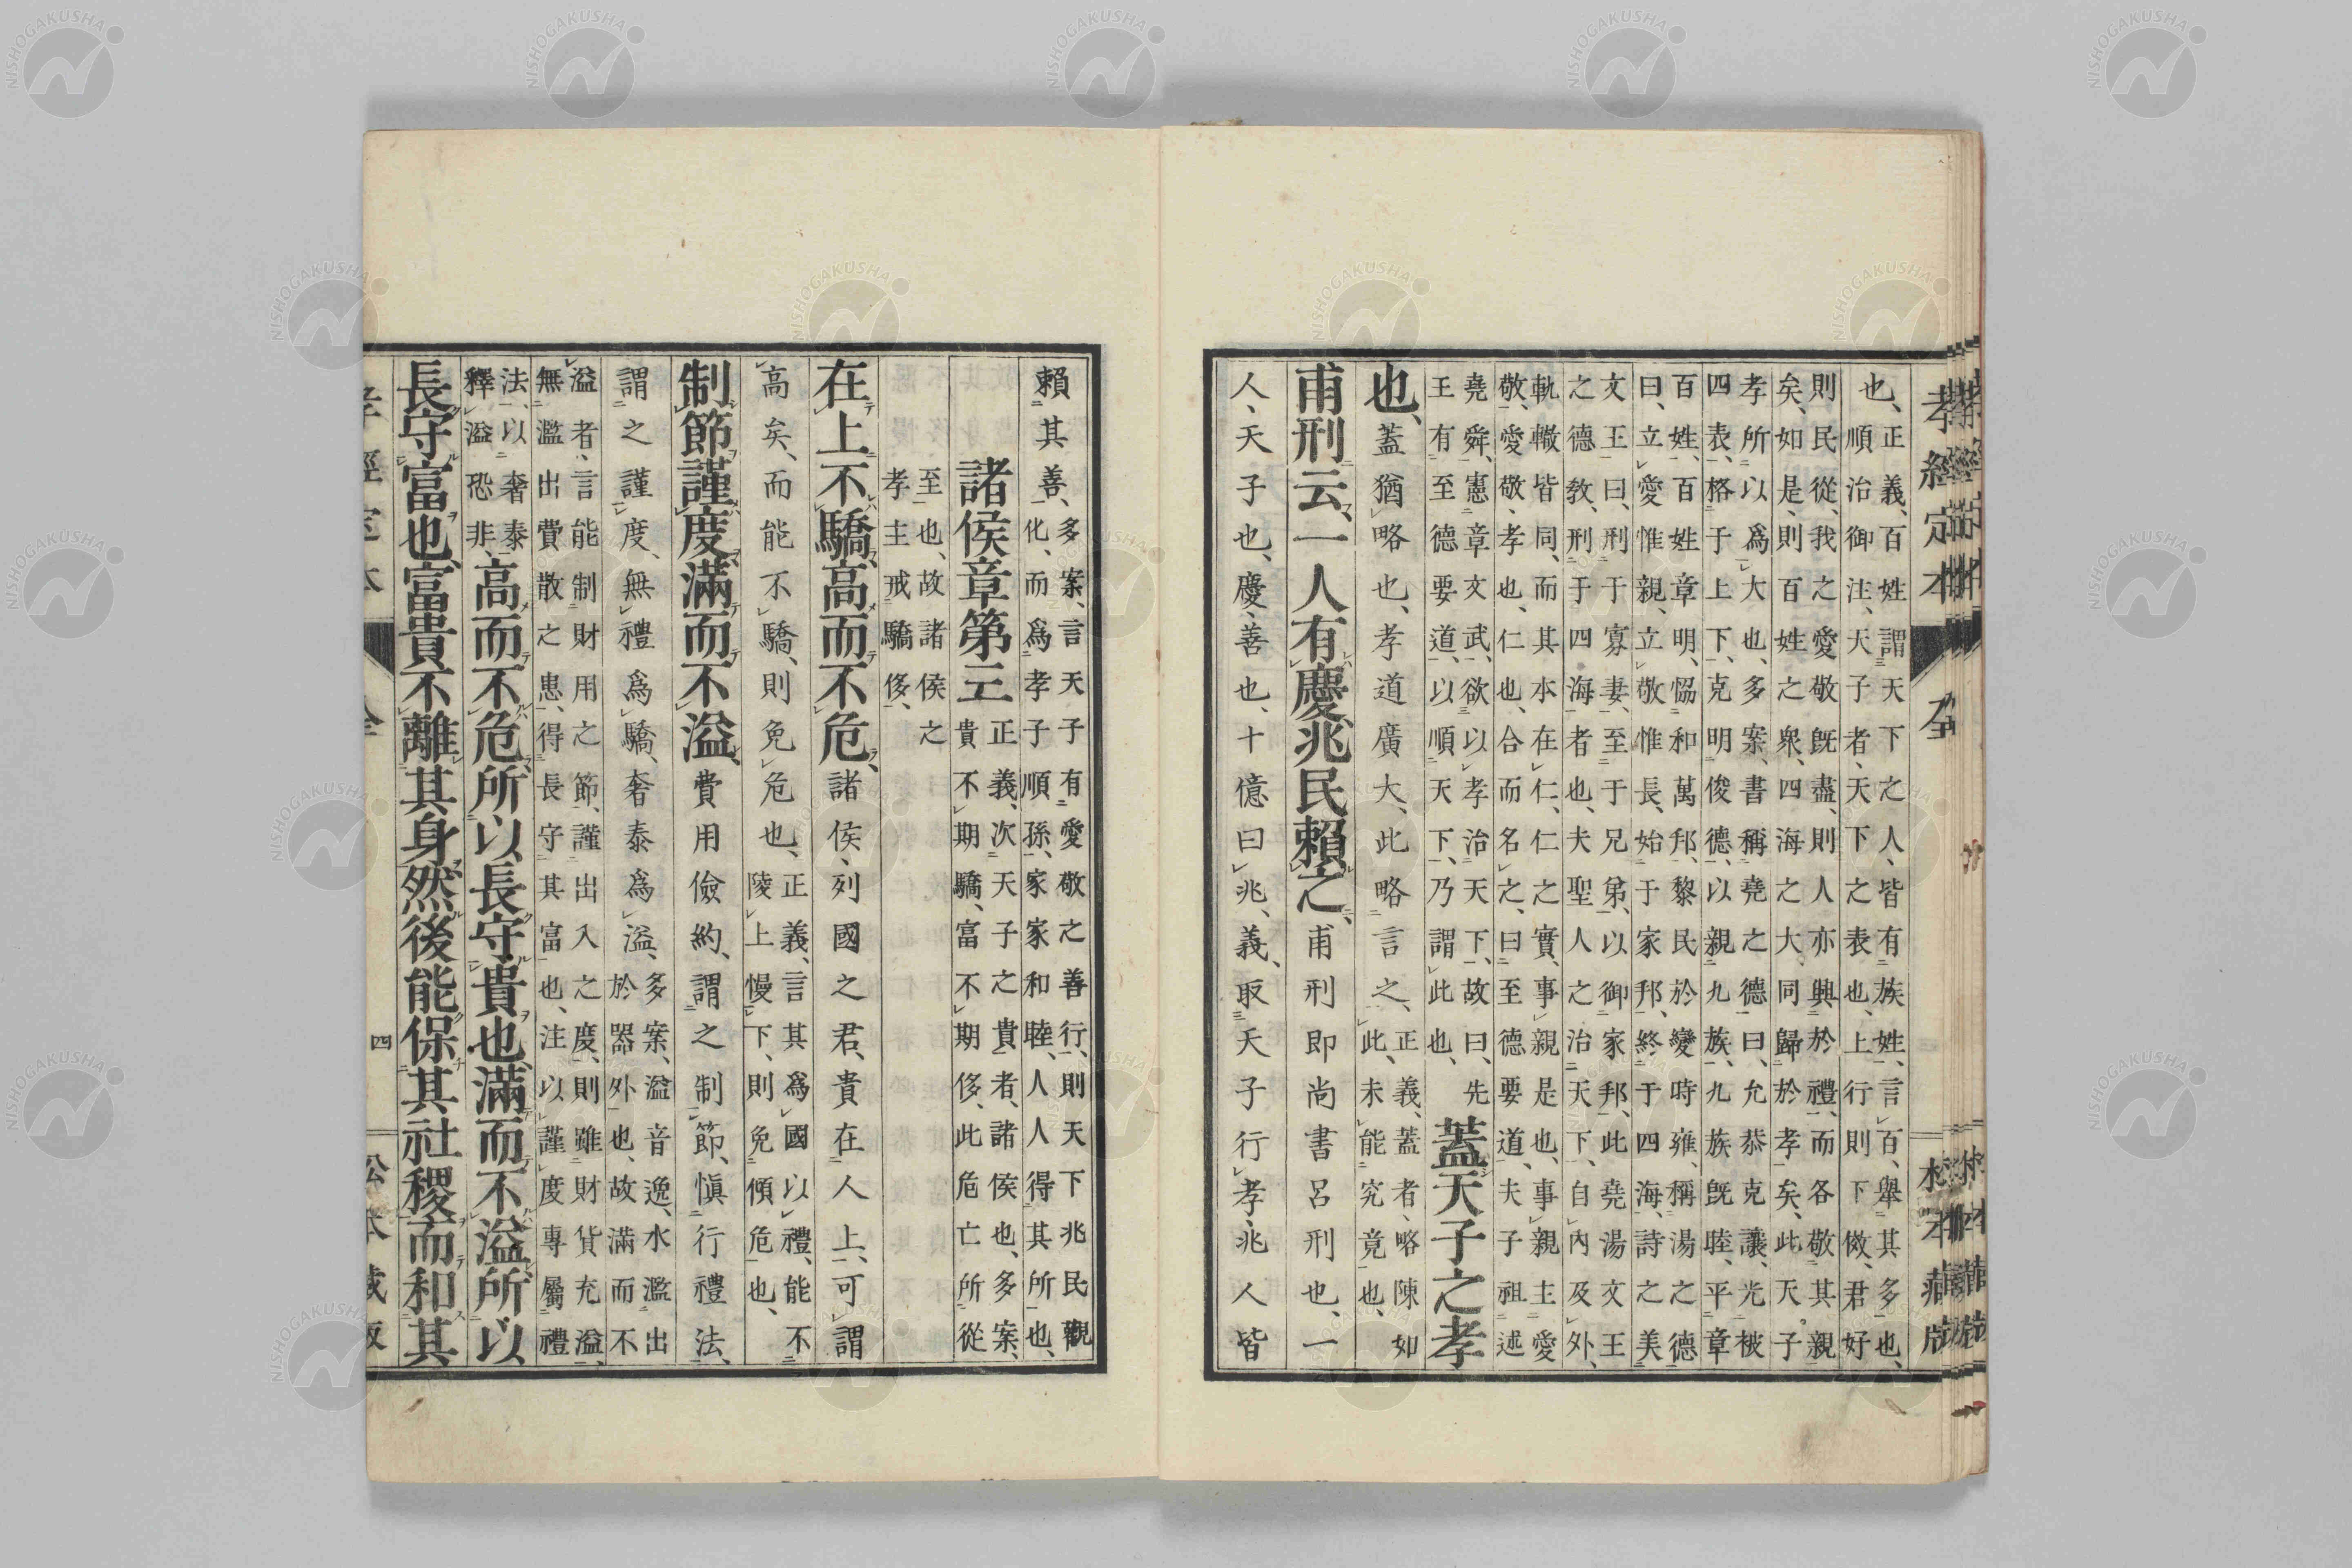 孝經定本 全 松本藏版
也、
正義、百姓謂天下之人、皆有族姓、言百、擧其多也、
順治御注、天子者、天下之表也、上行則下傚、君好
則民從、我之愛敬既盡、則人亦興於禮、而各敬其親
矣、如是、則百姓之衆、四海之大、同歸於孝矣、此天子
孝所以爲大也、多案、書稱堯之德曰、允恭克讓、光被
四表、格于上下、克明俊德、以親九族、九族既睦、平章
百姓、百姓章明、恊和萬邦、黎民於變時雍、稱湯之德
曰、立愛惟親、立敬惟長、始于家邦、終于四海、詩之美
文王曰、刑于寡妻、至于兄弟、以御家邦、此堯湯文王
之德敎、刑于四海者也、夫聖人之治天下、自內及外、
軌轍皆同、而其本在仁、仁之實、事親是也、事親主愛
敬、愛敬、孝也、仁也、合而名之、曰至德要道、夫子祖述
堯舜、憲章文武、欲以孝治天下、故曰、先
王有至德要道、以順天下、乃謂此也、
蓋天子之孝
也、蓋猶略也、孝道廣大、此略言之、
正義、蓋者、略陳如
此、未能究竟也、
甫刑云、一人有慶、兆民賴之、甫刑即尚書呂刑也、一
人、天子也、慶、善也、十億曰兆、義取天子行孝、兆人皆
賴其善、
多案、言天子有愛敬之善行、則天下兆民觀
化、而爲孝子順孫、家家和睦、人人得其所也、
諸侯章第三
正義、次天子之貴者、諸侯也、多案、
貴不期驕、富不期侈、此危亡所從
至也、故諸侯之
孝主戒驕侈、
在上不驕、高而不危、諸侯、列國之君、貴在人上、可謂
高矣、而能不驕、則免危也、
正義、言其爲國以禮、能不
陵上慢下、則免傾危也、
制節謹度、滿而不溢、費用儉約、謂之制節、愼行禮法、
謂之謹度、無禮爲驕、奢泰爲溢、
多案、溢音逸、水濫出
於器外也、故滿而不
溢者、言能制財用之節、謹出入之度、則雖財貨充溢、
無濫出費散之患、得長守其富也、注以謹度專屬禮
法、以奢泰
釋溢恐非、
高而不危、所以長守貴也、滿而不溢、所以
長守富也、富貴不離其身、然後能保其社稷、而和其
孝經定本 全 四 松本藏版
NISHOGAKUSHA